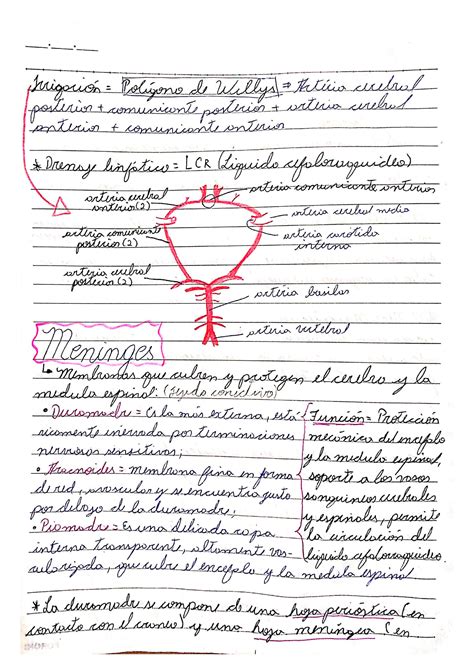 Irrigación = Polígono de Willys => Artéria cerebral
posterior + comunicante posterior + arteria cerebral
anterior + comunicante anterior
* Drenaje linfático = LCR (Líquido cefaloraquideo)
arteria comunicante anterior
arteria cerebral
anterior (2)
arteria cerebral media
arteria comunicante
posterior (2)
arteria carotida
interna
arteria cerebral
posterior (2)
arteria basilar
arteria vertebral
Meninges
Membranas que cubren y protegen el cerebro y la
medula espinal: (tejido conectivo)
• Duramadre = Es la más externa, está
ricamente inervada por terminaciones
nerviosas sensitivas;
• Aracnoides = membrana fina en forma
de red, avascular y se encuentra justo
por debajo de la duramadre;
• Piamadre = Es una delicada capa
interna transparente, altamente vas-
cularizada, que cubre el encefalo y la medula espinal
Función = Protección
mecánica del encefalo
y la medula espinal,
soporte a los vasos
sanguineos cerebrales
y espinales, permite
la circulación del
líquido cefaloraquideo.
* La duramadre se compone de una hoja perióstica (en
contacto con el craneo) y una hoja meníngea (en